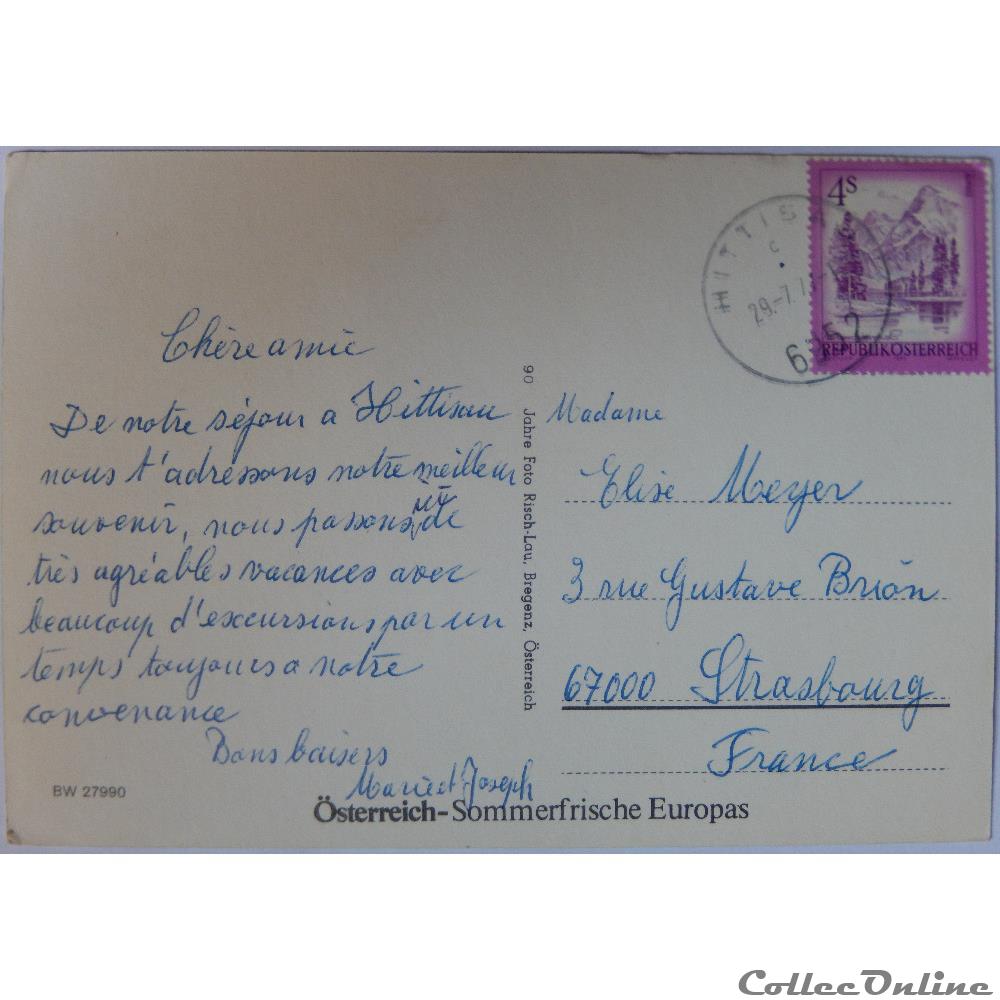 HITTIS
c
29.-7.7
6952
4S
REPUBLIK ÖSTERREICH
Chère amie
De notre séjour a Hittisau
nous t'adressons notre meilleur
souvenir, nous passons de
très agréables vacances avec
beaucoup d'excursions par un
temps toujours a notre
convenance
Bons baisers
Marie et Joseph
BW 27990
90 Jahre Foto Risch-Lau, Bregenz, Österreich
Madame
Elise Meyer
3 rue Gustave Brion
67000 Strasbourg
France
Österreich-Sommerfrische Europas
CollecOnline